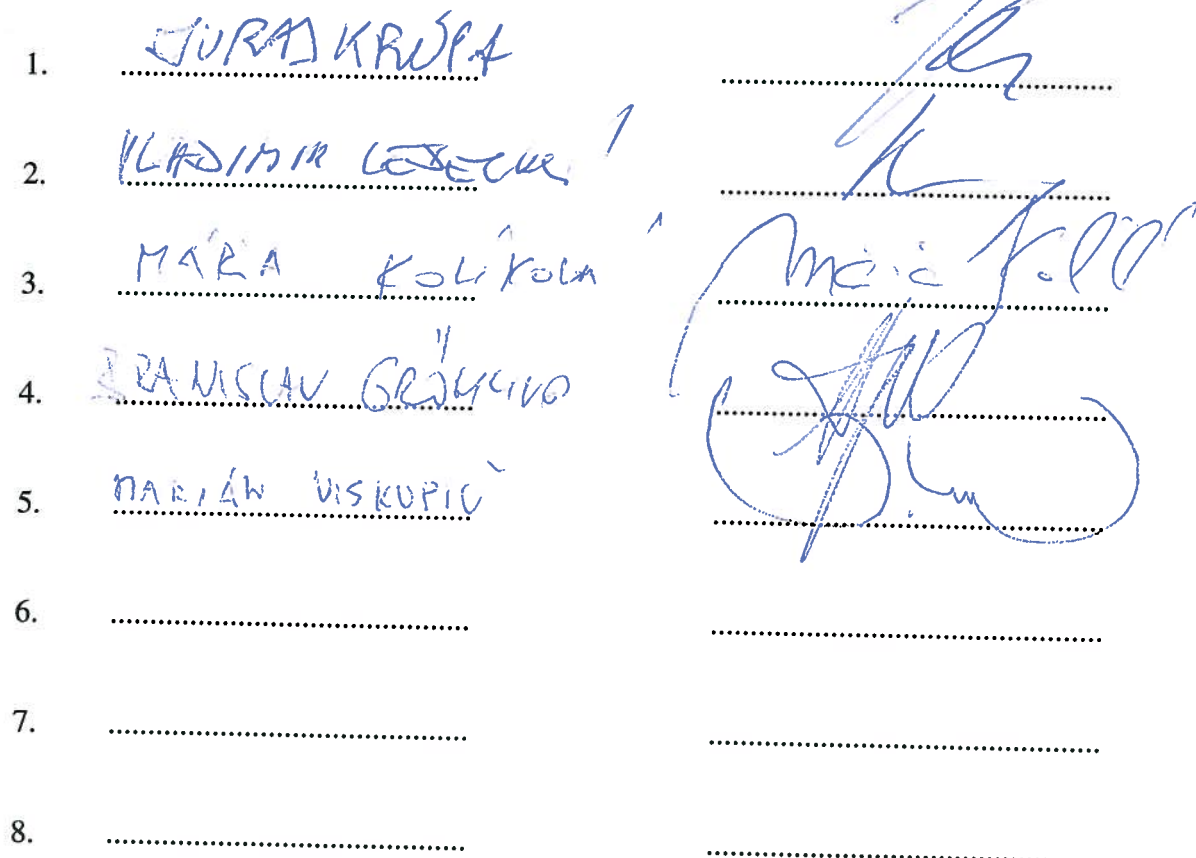 1. JURAJ KRÚPA
2. VLADIMIR LEDECKÝ
3. MÁRIA KOLÍKOVÁ Mária Kolík
4. BRANISLAV GRÖHLING
5. MARIÁN VISKUPIČ
6.
7.
8.